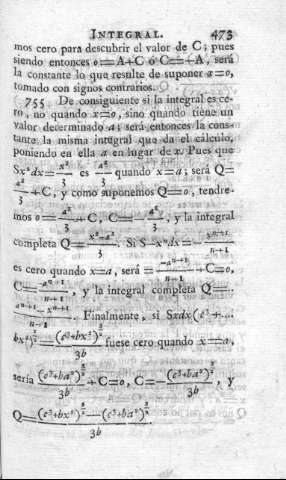 INTEGRAL. 473
mos cero para descubrir el valor de C; pues
siendo entonces o=A+C ó C=-A, será
la constante lo que resulte de suponer x=o,
tomado con signos contrarios.
755 De consiguiente si la integral es ce-
ro, no quando x=o, sino quando tiene un
valor determinado a; será entonces la cons-
tante la misma integral que da el cálculo,
poniendo en ella a en lugar de x. Pues que
Sx²dx=x³/3 es a³/3 quando x=a; será Q=
a³/3+C, y como suponemos Q=o, tendre-
mos o=a³/3+C, C=-a³/3, y la integral
completa Q=(x³-a³)/3. Si S-xⁿdx=-xⁿ⁺¹/(n+1)
es cero quando x=a, será =-aⁿ⁺¹/(n+1)+C=o,
C=aⁿ⁺¹/(n+1), y la integral completa Q=..
(aⁿ⁺¹-xⁿ⁺¹)/(n+1). Finalmente, si Sxdx(c³+....
bx²)^½=(c³+bx²)^(3/2)/3b fuese cero quando x=a,
sería (c³+ba²)^(3/2)/3b+C=o, C=-(c³+ba²)^(3/2)/3b, y
Q=((c³+bx²)^(3/2)-(c³+ba²)^(3/2))/3b.